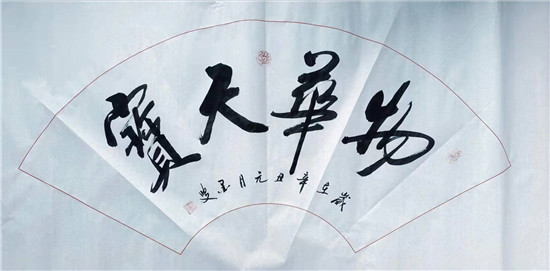 物華天寶
歲在辛丑元月墨